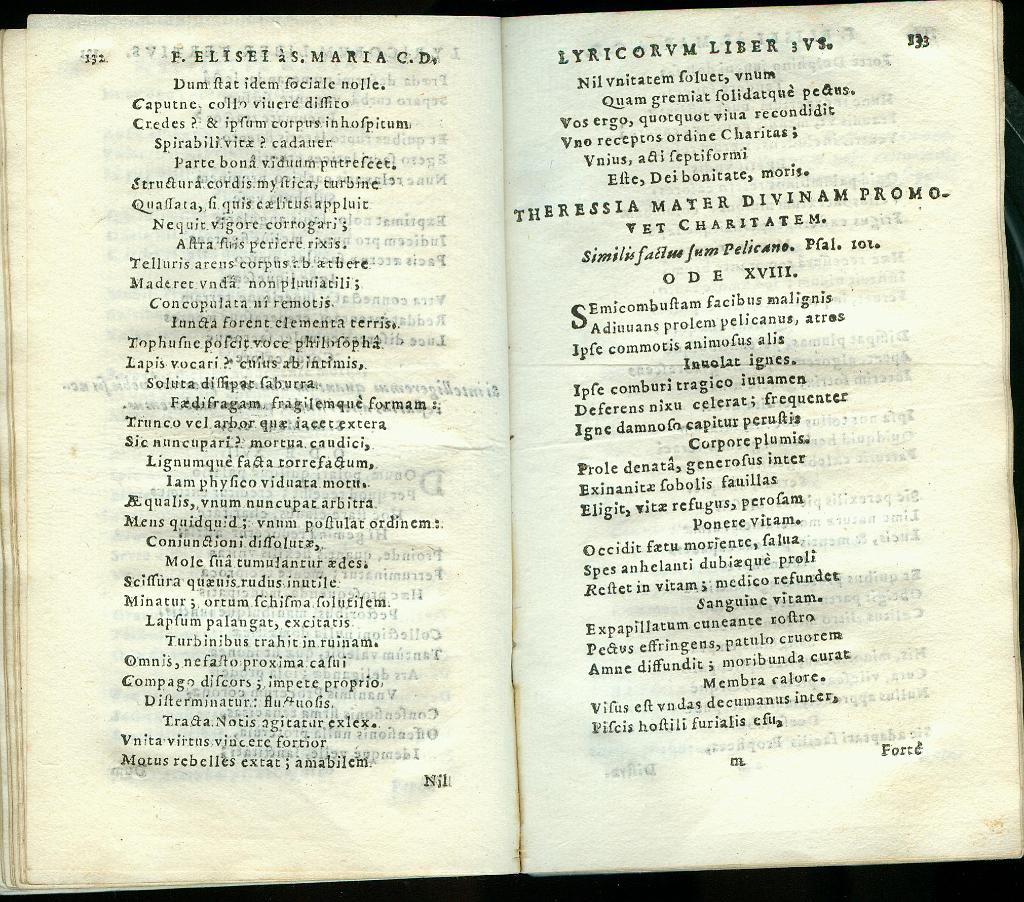 132 F. ELISEI à S. MARIA C. D.
Dum ſtat idem ſociale nolle.
Caputne, collo viuere diſſito
Credes ? & ipſum corpus inhoſpitum
Spirabili vitæ ? cadauer
Parte bonâ viduum putreſcet.
Structurâ cordis myſtica, turbine
Quaſſata, ſi quis cælitus appluit
Nequit vigore corrogari;
Aſtra ſuis periere rixis.
Telluris arens corpus ab æthere
Maderet vndâ non pluuiatili;
Concopulata ni remotis
Iuncta forent elementa terris.
Tophuſne poſcit voce philoſophâ
Lapis vocari ? cuius ab intimis,
Soluta diſſipat ſaburra
Fædifragam fragilemquè formam :
Trunco vel arbor quæ iacet extera
Sic nuncupari ? mortua caudici,
Lignumquè facta torrefactum,
Iam phyſico viduata motu.
Æqualis, vnum nuncupat arbitra
Mens quidquid ; vnum poſtulat ordinem :
Coniunctioni diſſolutæ,
Mole ſuâ tumulantur ædes.
Sciſſura quæuis rudus inutile
Minatur ; ortum ſchiſma ſolutilem
Lapſum palangat, excitatis
Turbinibus trahit in ruinam.
Omnis, nefaſto proxima caſui
Compago diſcors ; impete proprio,
Diſterminatur : fluctuoſis
Tracta Notis agitatur exlex.
Vnita virtus vincere fortior
Motus rebelles extat ; amabilem
Nil
LYRICORVM LIBER 3VS. 133
Nil vnitatem ſoluet, vnum
Quam gremiat ſolidatquè pectus.
Vos ergo, quotquot viua recondidit
Vno receptos ordine Charitas ;
Vnius, acti ſeptiformi
Eſte, Dei bonitate, moris.
THERESSIA MATER DIVINAM PROMO-
VET CHARITATEM.
Similis factus ſum Pelicano. Pſal. 101.
ODE XVIII.
SEmicombuſtam facibus malignis
Adiuuans prolem pelicanus, atros
Ipſe commotis animoſus alis
Inuolat ignes.
Ipſe comburi tragico iuuamen
Deferens nixu celerat ; frequenter
Igne damnoſo capitur peruſtis
Corpore plumis.
Prole denatâ, generoſus inter
Exinanitæ ſobolis fauillas
Eligit, vitæ refugus, peroſam
Ponere vitam.
Occidit fætu moriente, ſalua
Spes anhelanti dubiæquè proli
Reſtet in vitam ; medico refundet
Sanguine vitam.
Expapillatum cuneante roſtro
Pectus effringens, patulo cruorem
Amne diffundit ; moribunda curat
Membra calore.
Viſus eſt vndas decumanus inter,
Piſcis hoſtili furialis eſu,
m Fortè